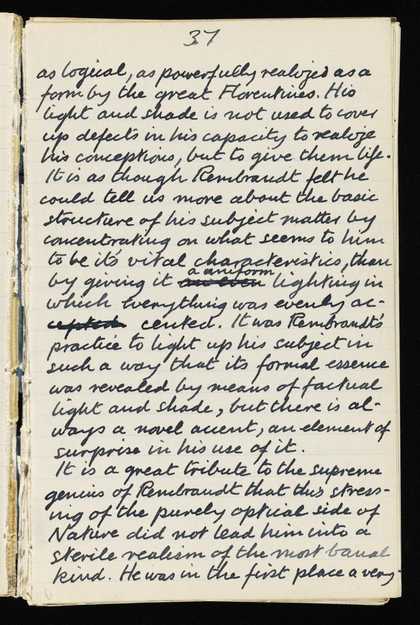 37
as logical, as powerfully realized as a
form by the great Florentines. His
light and shade is not used to cover
up defects in his capacity to realize
his conceptions, but to give them life.
It is as though Rembrandt felt he
could tell us more about the basic
structure of his subject matter by
concentrating on what seems to him
to be it's vital characteristics, than
a uniform
by giving it an even lighting in
which everything was evenly ac-
cepted cented. It was Rembrandt's
practice to light up his subject in
such a way that its formal essence
was revealed by means of factual
light and shade, but there is al-
ways a novel accent, an element of
surprise in his use of it.
It is a great tribute to the supreme
genius of Rembrandt that this stress-
ing of the purely optical side of
Nature did not lead him into a
sterile realism of the most banal
kind. He was in the first place a very